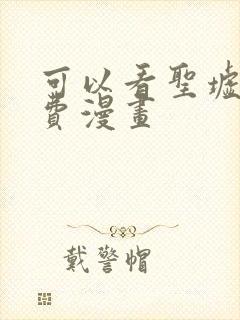 可以看聖墟
費漫畫
戴警帽